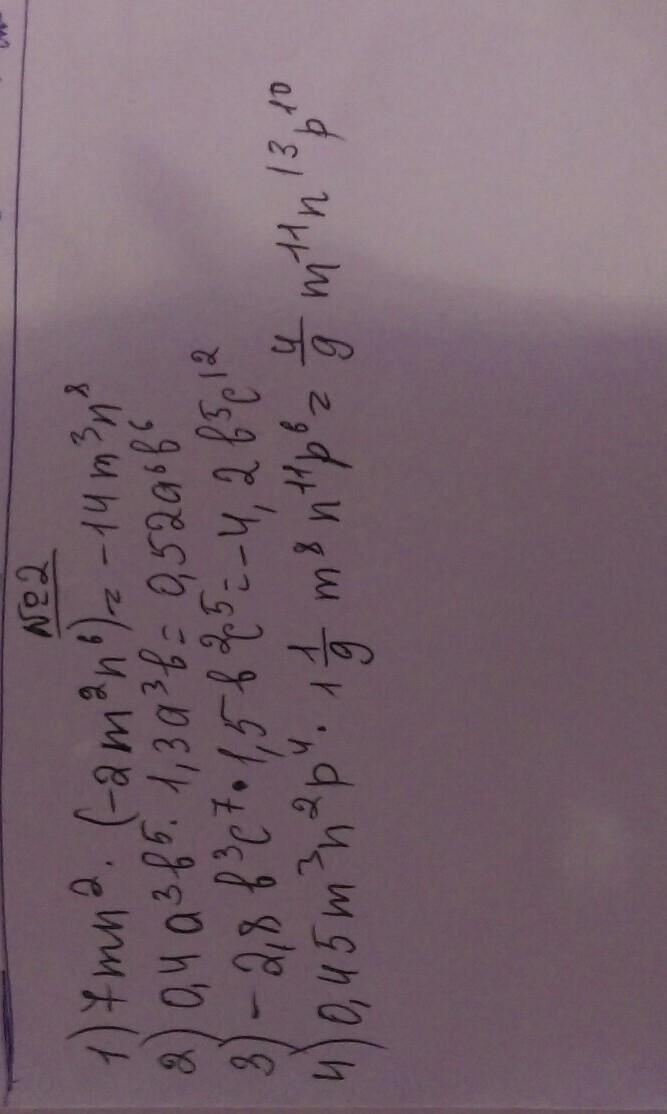 №2
1) 7mn². (-2m²n⁶)= -14m³n⁸
2) 0,4a³b⁵. 1,3a³b = 0,52a⁶b⁶
3) -2,8 b³c⁷ • 1,5 b²c⁵ = -4,2 b⁵c¹²
4) 0,45m³n²p⁴. 1 1/9 m⁸n¹¹p⁶ = 4/9 m¹¹n¹³p¹⁰